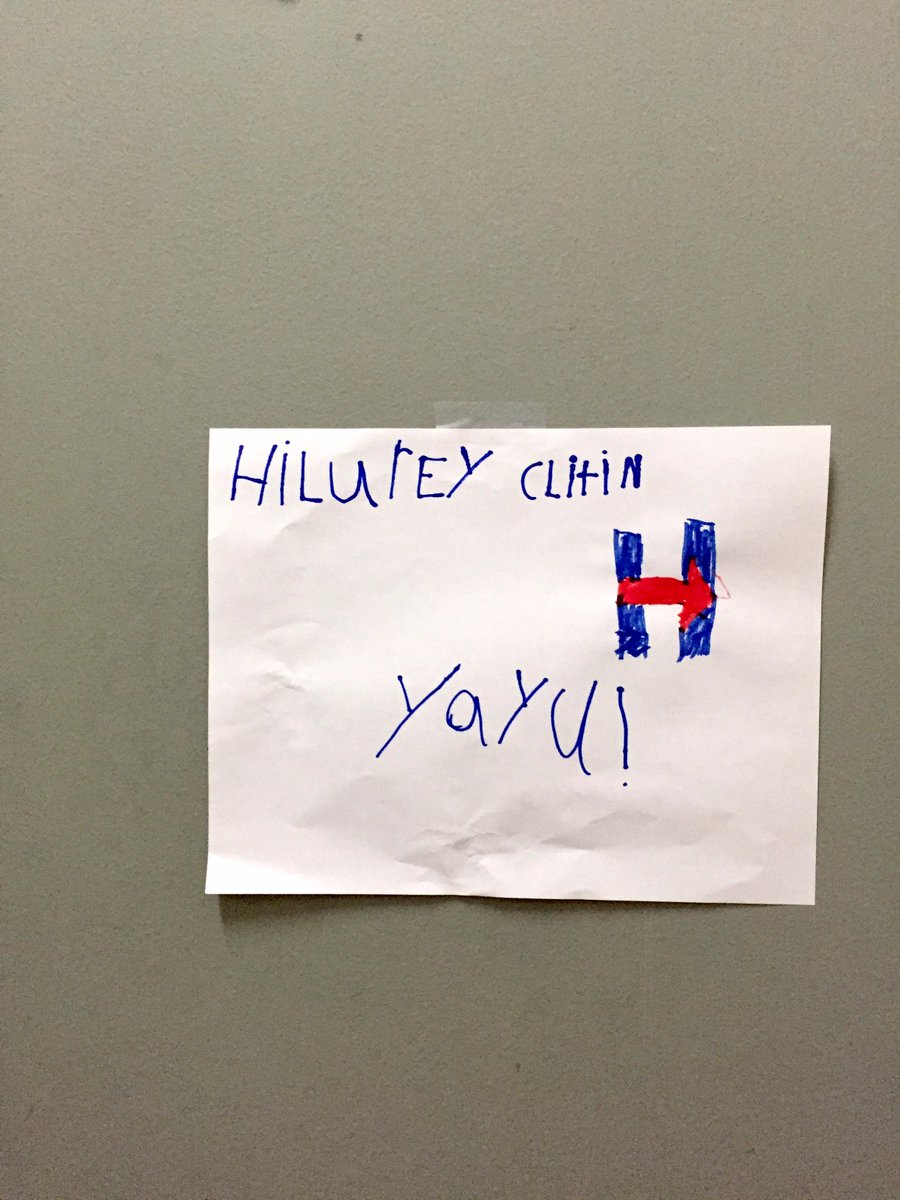 HiLurEY CLitiN
H
yayu!